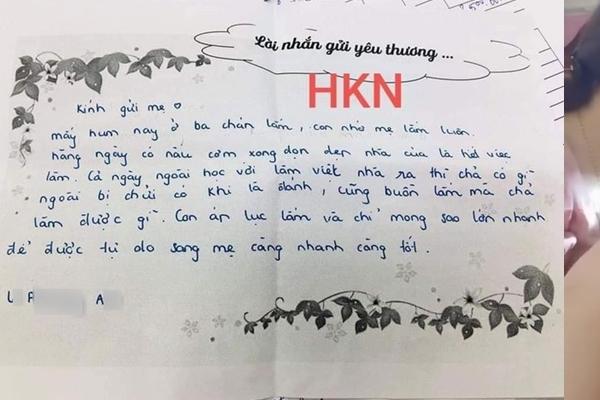 Lời nhắn gửi yêu thương ...
HKN
Kính gửi mẹ ♡
mấy hum nay ở ba chán lắm, con nhớ mẹ lắm luôn.
hằng ngày có nấu cơm xong dọn dẹp nhà cửa là hết việc
làm. Cả ngày ngoài học với làm việt nhà ra thì chả có gì
ngoài bị chửi có khi là đánh, cũng buồn lắm mà chả
làm được gì. Con áp lực lắm và chỉ mong sao lớn nhanh
để được tự do sang mẹ càng nhanh càng tốt.